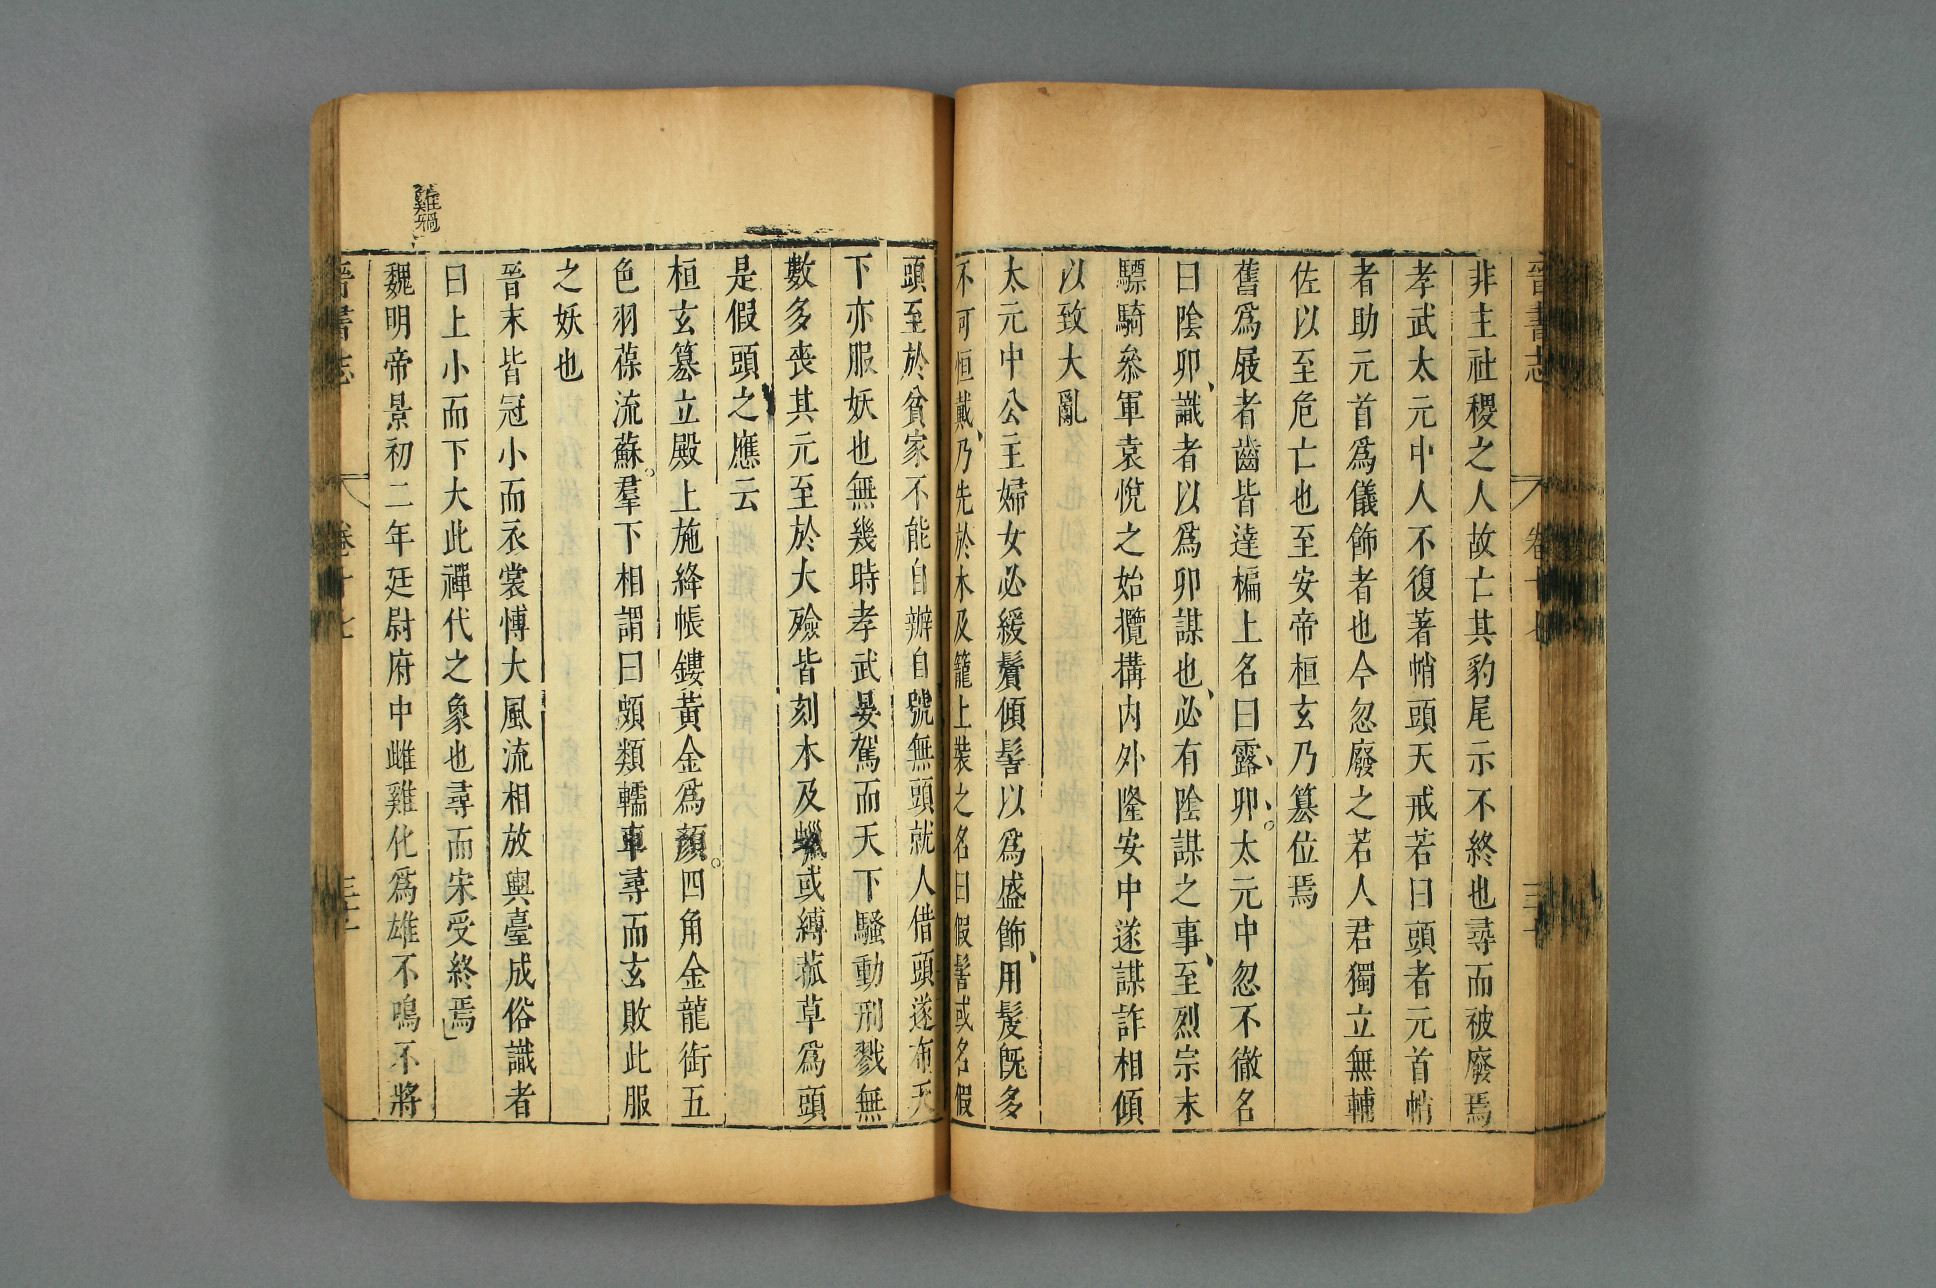 晉書志
卷十七
非主社稷之人故亡其豹尾示不終也尋而被廢焉
孝武太元中人不復著帩頭天戒若曰頭者元首帩
者助元首爲儀飾者也今忽廢之若人君獨立無輔
佐以至危亡也至安帝桓玄乃篡位焉
舊爲屐者齒皆達楄上名曰露卯太元中忽不徹名
曰陰卯識者以爲卯謀也必有陰謀之事至烈宗末
驃騎叅軍袁悅之始攬搆內外隆安中遂謀詐相傾
以致大亂
太元中公主婦女必緩鬢傾髻以爲盛飾用髲旣多
不可恒戴乃先於木及籠上裝之名曰假髻或名假
頭至於貧家不能自辦自號無頭就人借頭遂布天
下亦服妖也無幾時孝武晏駕而天下騷動刑戮無
數多喪其元至於大殮皆刻木及蠟或縛菰草爲頭
是假頭之應云
桓玄篡立殿上施絳帳鏤黃金爲顏四角金龍銜五
色羽葆流蘇羣下相謂曰頗類轜車尋而玄敗此服
之妖也
晉末皆冠小而衣裳愽大風流相放輿臺成俗識者
曰上小而下大此禪代之象也尋而宋受終焉
雞禍
魏明帝景初二年廷尉府中雌雞化爲雄不鳴不將
晉書志
卷十七